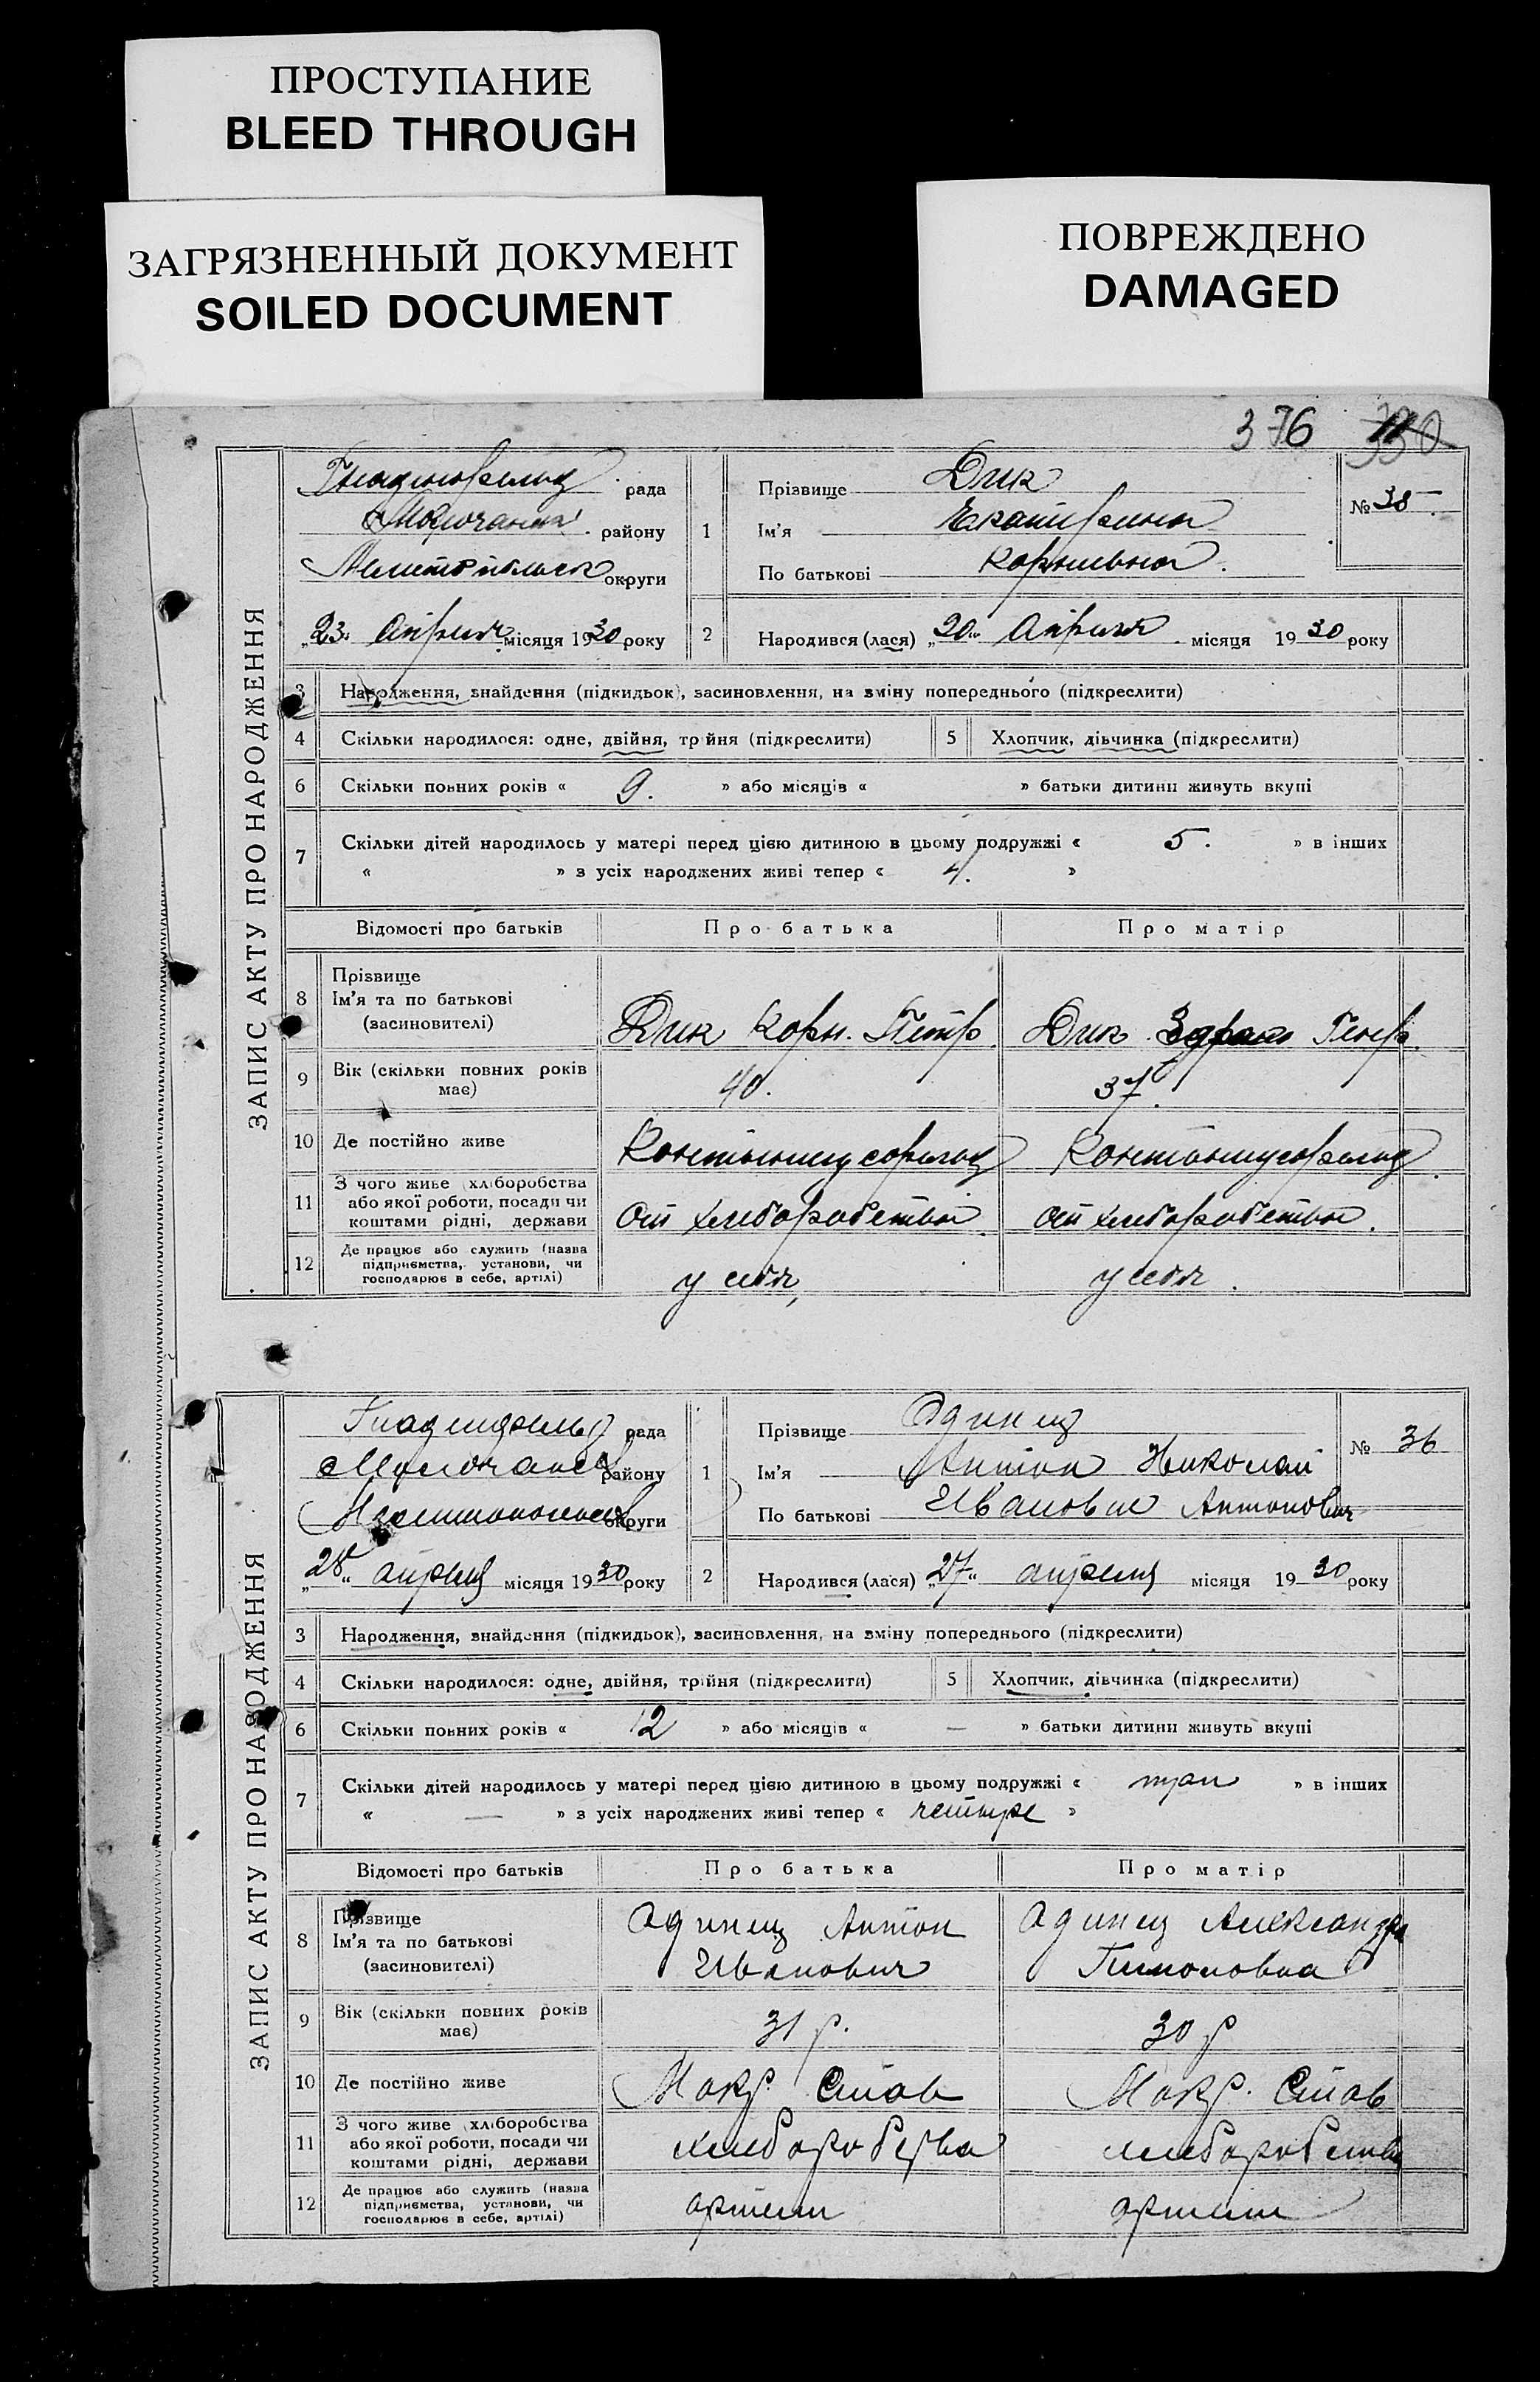 ПРОСТУПАНИЕ
BLEED THROUGH
ЗАГРЯЗНЕННЫЙ ДОКУМЕНТ
SOILED DOCUMENT
ПОВРЕЖДЕНО
DAMAGED
376
ЗАПИС АКТУ ПРО НАРОДЖЕННЯ
рада
району
округи
„23“ Апреля місяця 1930 року
1
Прізвище Дик
Ім'я Екатерина
По батькові Корниевна
№ 35
2
Народився (лася) „20“ Апреля місяця 1930 року
3 Народження, знайдення (підкидьок), засиновлення, на зміну попереднього (підкреслити)
4 Скільки народилося: одне, двійня, трійня (підкреслити)
5 Хлопчик, дівчинка (підкреслити)
6 Скільки повних років « 9. » або місяців « » батьки дитини живуть вкупі
7 Скільки дітей народилось у матері перед цією дитиною в цьому подружжі « 5. » в інших
« » з усіх народжених живі тепер « 4. »
Відомості про батьків Про батька Про матір
8 Прізвище
Ім'я та по батькові
(засиновителі)
Дик Корн. Петр. Дик Генр.
9 Вік (скільки повних років має) 40. 37.
10 Де постійно живе
11 З чого живе (хліборобства або якої роботи, посади чи коштами рідні, держави
От хлеборобства От хлеборобства.
12 Де працює або служить (назва підприємства, установи, чи господарює в себе, артілі)
у себя, у себя.
ЗАПИС АКТУ ПРО НАРОДЖЕННЯ
рада
району
округи
„28“ апреля місяця 1930 року
1
Прізвище Одинец
Ім'я Антон Николай
По батькові Иванович Антонович
№ 36
2
Народився (лася) „27“ апреля місяця 1930 року
3 Народження, знайдення (підкидьок), засиновлення, на зміну попереднього (підкреслити)
4 Скільки народилося: одне, двійня, трійня (підкреслити)
5 Хлопчик, дівчинка (підкреслити)
6 Скільки повних років « 12 » або місяців « — » батьки дитини живуть вкупі
7 Скільки дітей народилось у матері перед цією дитиною в цьому подружжі « три » в інших
« — » з усіх народжених живі тепер « четыре »
Відомості про батьків Про батька Про матір
8 Прізвище
Ім'я та по батькові
(засиновителі)
Одинец Антон Одинец Александра
Иванович
9 Вік (скільки повних років має) 31 р. 30 р
10 Де постійно живе Мокр. Став Мокр. Став
11 З чого живе (хліборобства або якої роботи, посади чи коштами рідні, держави
12 Де працює або служить (назва підприємства, установи, чи господарює в себе, артілі)
артели артели